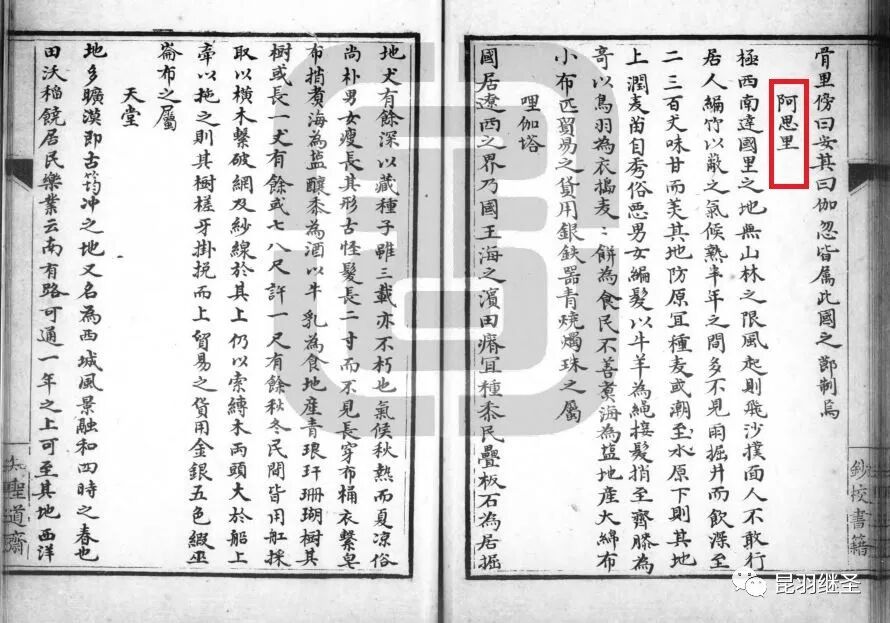 骨里傍曰安其曰伽忽皆属此國之節制焉
阿思里
極西南達國里之地無山林之限風起則飛沙撲面人不敢行
居人編竹以蔽之氣候熱半年之間多不見雨掘井而飲深至
二三百丈味甘而美其地防原宜種麦或潮至水原下則其地
上潤麦苗自秀俗惡男女編髮以牛羊為繩接髮捎至齊膝為
奇以鳥羽為衣搗麦〻餅為食民不善煑海為盐地産大綿布
小布匹貿易之貨用銀鉄器青燒燭珠之属
哩伽塔
國居遼西之界乃國王海之濱田瘠宜種黍民疊板石為居掘
鈔校書籍
地丈有餘深以藏種子雖三載亦不朽也氣候秋熱而夏凉俗
尚朴男女瘦長其形古怪髮長二寸而不見長穿布桶衣繫皂
布捎煑海為盐釀黍為酒以牛乳為食地産青琅玕珊瑚樹其
樹或長一丈有餘或七八尺許一尺有餘秋冬民間皆用舡採
取以横木繫破網及紗線於其上仍以索縛木両頭人於船上
牽以拖之則其樹槎牙掛挽而上貿易之貨用金銀五色緞巫
崙布之属
天堂
地多曠漠即古筠冲之地又名為西城風景融和四時之春也
田沃稲饒居民樂業云南有路可通一年之上可至其地西洋
知聖道齋
昆羽继圣